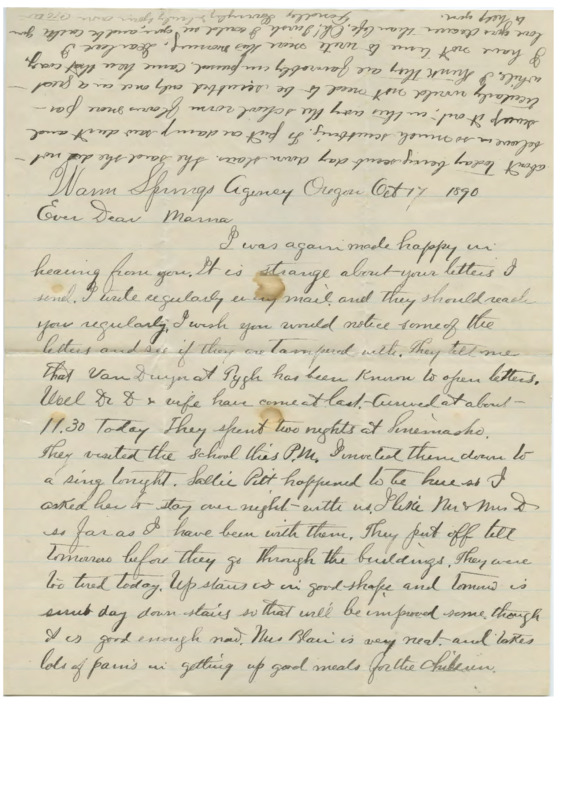 Warm Springs Agency Oregon Oct 17 1890
Ever Dear Mama
I was again made happy in
hearing from you. It is strange about your letters I
send. I write regularly every mail and they should reach
you regularly. I wish you would notice some of the
letters and see if they are tampered with. They tell me
that Van Duyn at Tygh has been known to open letters.
Well Dr D & wife have come at last. Arrived at about
11.30 today They spent two nights at Sinemasho.
They visited the School this P.M. I invited them down to
a sing tonight. Sallie Pitt happened to be here so I
asked her to stay over night with us. I like Mr & Mrs D
so far as I have been with them. They put off till
tomorrow before they go through the buildings. They were
too tired today. Up stairs is in good shape and tomow is
scrub day down stairs so that will be improved some though
it is good enough now. Mrs Blair is very neat and takes
lots of pains in getting up good meals for the children.
about today being scrub day down stairs. She said she did not
believe in so much scrubbing. To put on damp saw dust and
sweep it out; in this way the school room floors more par-
ticularly would not need to be scrubbed only once in a great
while. I think they are favorably impressed. Came from that way.
I have not time to write more this morning, dear love. I
love you dearer than life. Oh! I wish I could see you and
to help you.